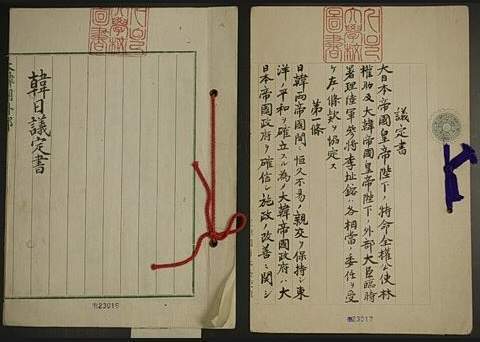 韓日議定書
23016
議定書
大日本帝國皇帝陛下ノ特命全權公使林
權助及大韓帝國皇帝陛下ノ外部大臣臨時
署理陸軍參將李址鎔ハ各相當ノ委任ヲ受
ケ左ノ條款ヲ協定ス
第一條
日韓兩帝國間ニ恒久不易ノ親交ヲ保持シ東
洋ノ平和ヲ確立スル為メ大韓帝國政府ハ大
日本帝國政府ヲ確信シ施政ノ改善ニ関シ
23017